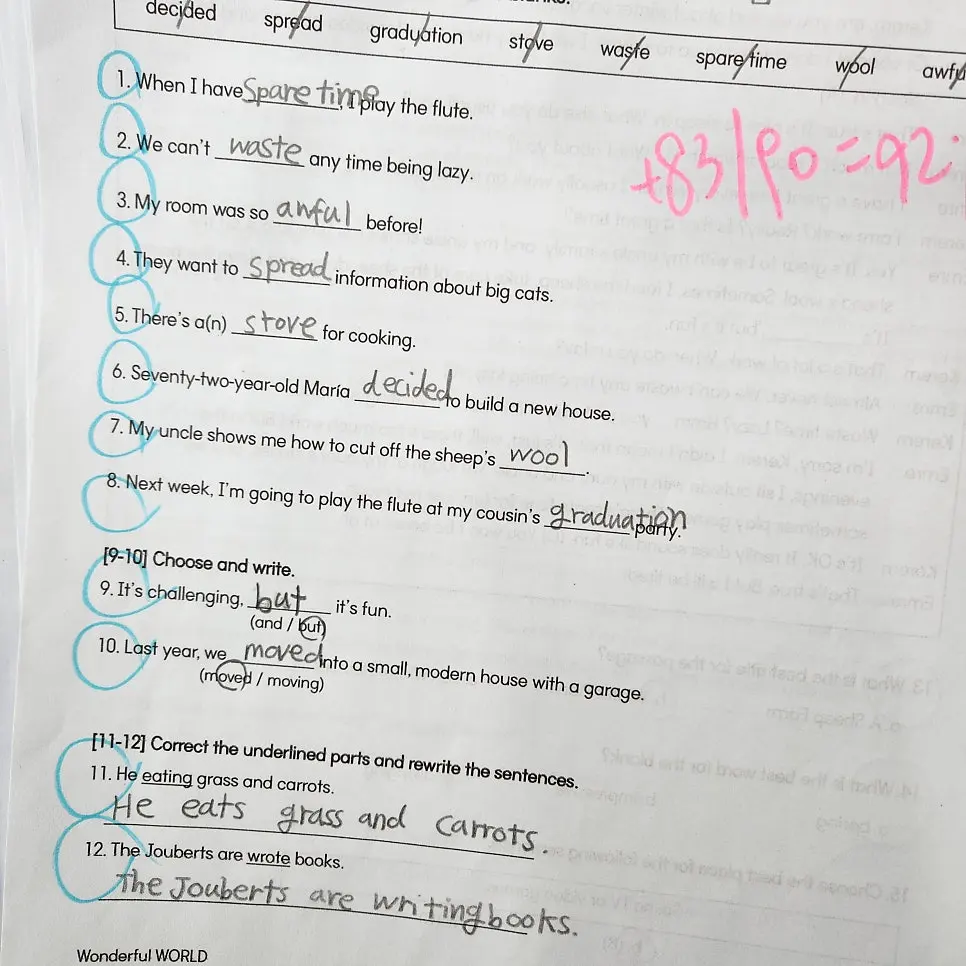 decided spread graduation stove waste spare time wool
+83/90 = 92
1. When I have Spare time, I play the flute.
2. We can't waste any time being lazy.
3. My room was so awful before!
4. They want to spread information about big cats.
5. There's a(n) stove for cooking.
6. Seventy-two-year-old María decided to build a new house.
7. My uncle shows me how to cut off the sheep's wool.
8. Next week, I'm going to play the flute at my cousin's graduation party.
[9-10] Choose and write.
9. It's challenging, but it's fun.
(and / but)
10. Last year, we moved into a small, modern house with a garage.
(moved / moving)
[11-12] Correct the underlined parts and rewrite the sentences.
11. He eating grass and carrots.
He eats grass and carrots.
12. The Jouberts are wrote books.
The Jouberts are writing books.
Wonderful WORLD